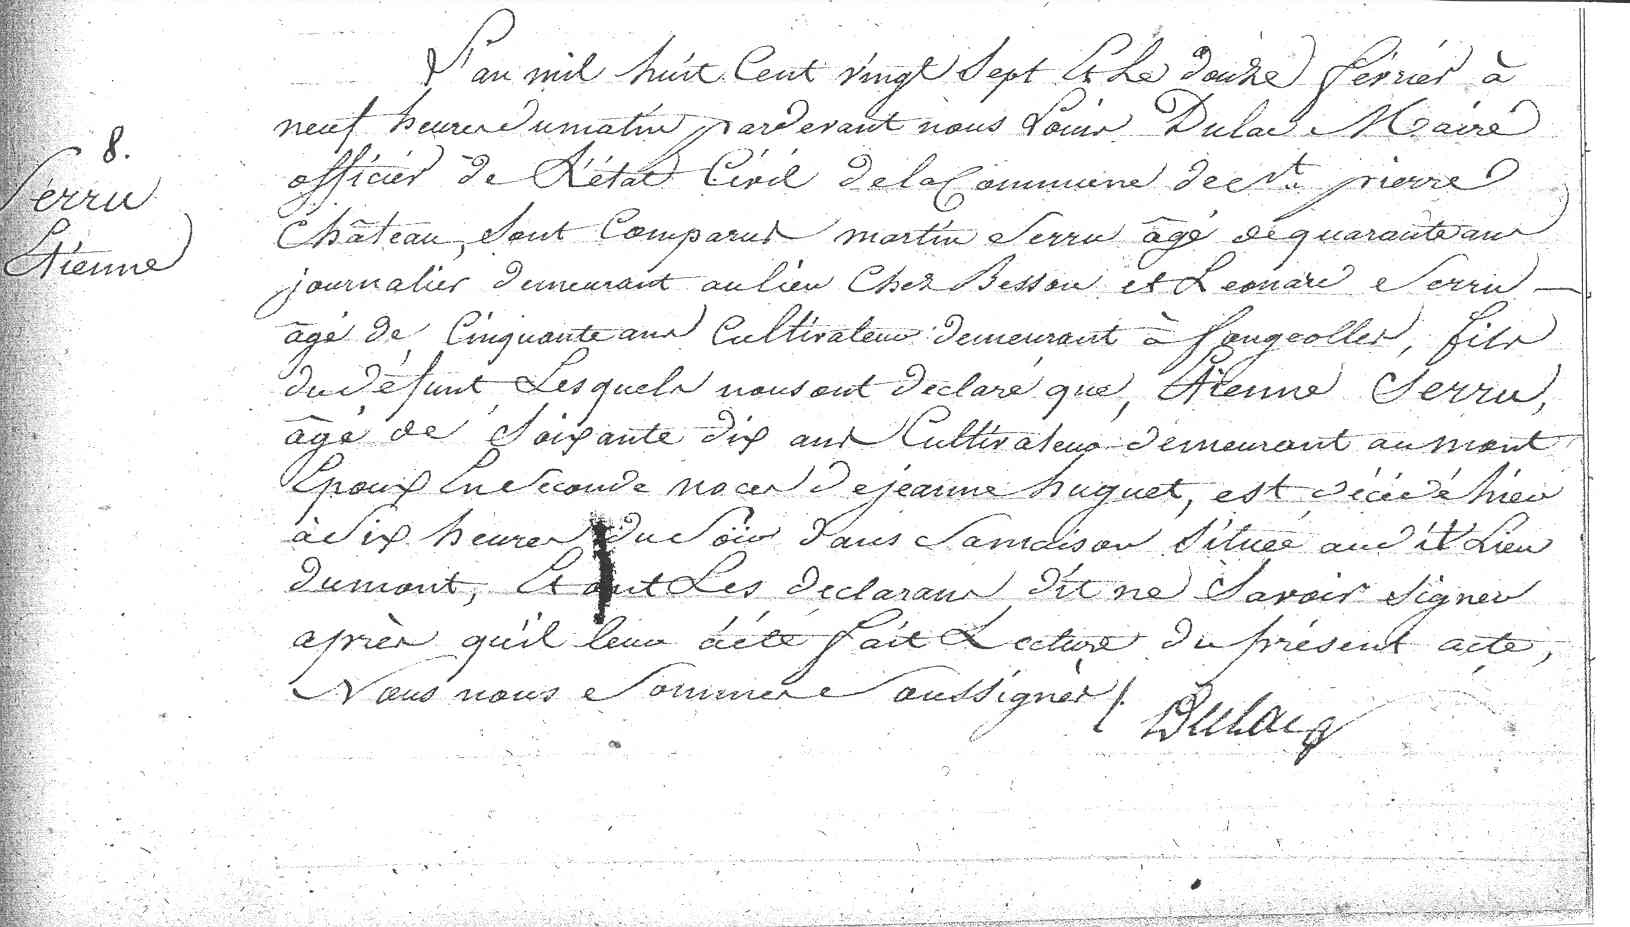 L'an mil huit Cent vingt Sept Et Le douze février à
neuf heures du matin pardevant nous Louis Dulac Maire
8.
officier de L'état Civil de la Commune de St. pierre
Serru
Château, Sont Comparus martin Serru âgé de quarante ans
Etienne
journalier demeurant au lieu Chez Besson et Leonard Serru —
âgé de Cinquante ans Cultivateur demeurant à fougeolles, fils
du défunt, Lesquels nous ont déclaré que, Etienne Serru,
âgé de Soixante dix ans Cultivateur demeurant au mont
Epoux En Seconde noces de jeanne huguet, est décédé hier
à Six heures du Soir dans Sa maison Située audit Lieu
du mont, Et ont Les déclarans dit ne Savoir Signer
après qu'il leur a été fait Lecture du présent acte,
Nous nous Sommes Soussignés /.
Dulac